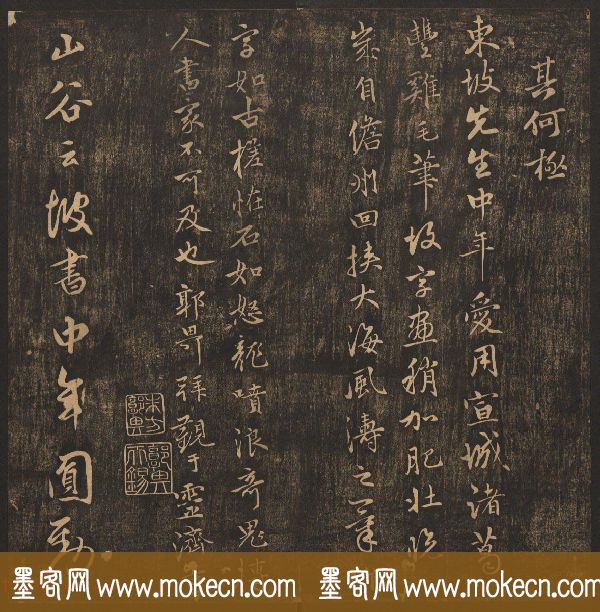 其何極
東坡先生中年愛用宣城諸葛
豐雞毛筆故字畫稍加肥壯晚
歲自儋州回挾大海風濤之氣
字如古槎怪石如怒龍噴浪奇鬼搏
人書家不可及也郭畀拜觀于靈濟
山谷云坡書中年圓勁
墨客网 www.mokecn.com 墨客网 www.mokecn.com